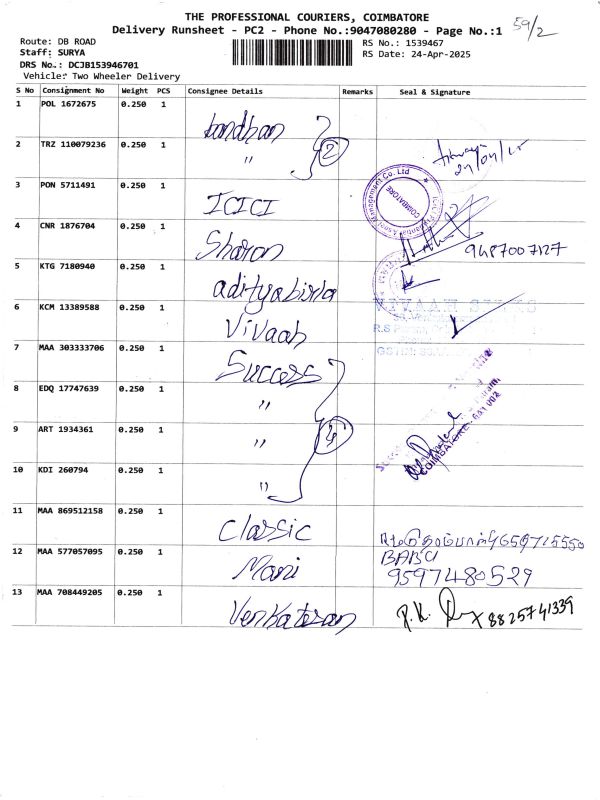 THE PROFESSIONAL COURIERS, COIMBATORE
59/2
Delivery Runsheet - PC2 - Phone No.:9047080280 - Page No.:1
Route: DB ROAD
RS No.: 1539467
Staff: SURYA
RS Date: 24-Apr-2025
DRS No.: DCJB153946701
Vehicle: Two Wheeler Delivery
S No Consignment No Weight PCS Consignee Details Remarks Seal & Signature
1 POL 1672675 0.250 1 bandhan
2 TRZ 110079236 0.250 1 " 2
3 PON 5711491 0.250 1 ICICI
COIMBATORE
4 CNR 1876704 0.250 1 Sharon 9487007127
5 KTG 7180940 0.250 1 aditya birla
6 KCM 13389588 0.250 1 Vivaah
7 MAA 303333706 0.250 1 Success
8 EDQ 17747639 0.250 1 "
9 ART 1934361 0.250 1 " 4
COIMBATORE - 641 002
10 KDI 260794 0.250 1 "
11 MAA 869512158 0.250 1 Classic
12 MAA 577057095 0.250 1 Mani BABU
9597480529
13 MAA 708449205 0.250 1 Venkatesan 8825741339